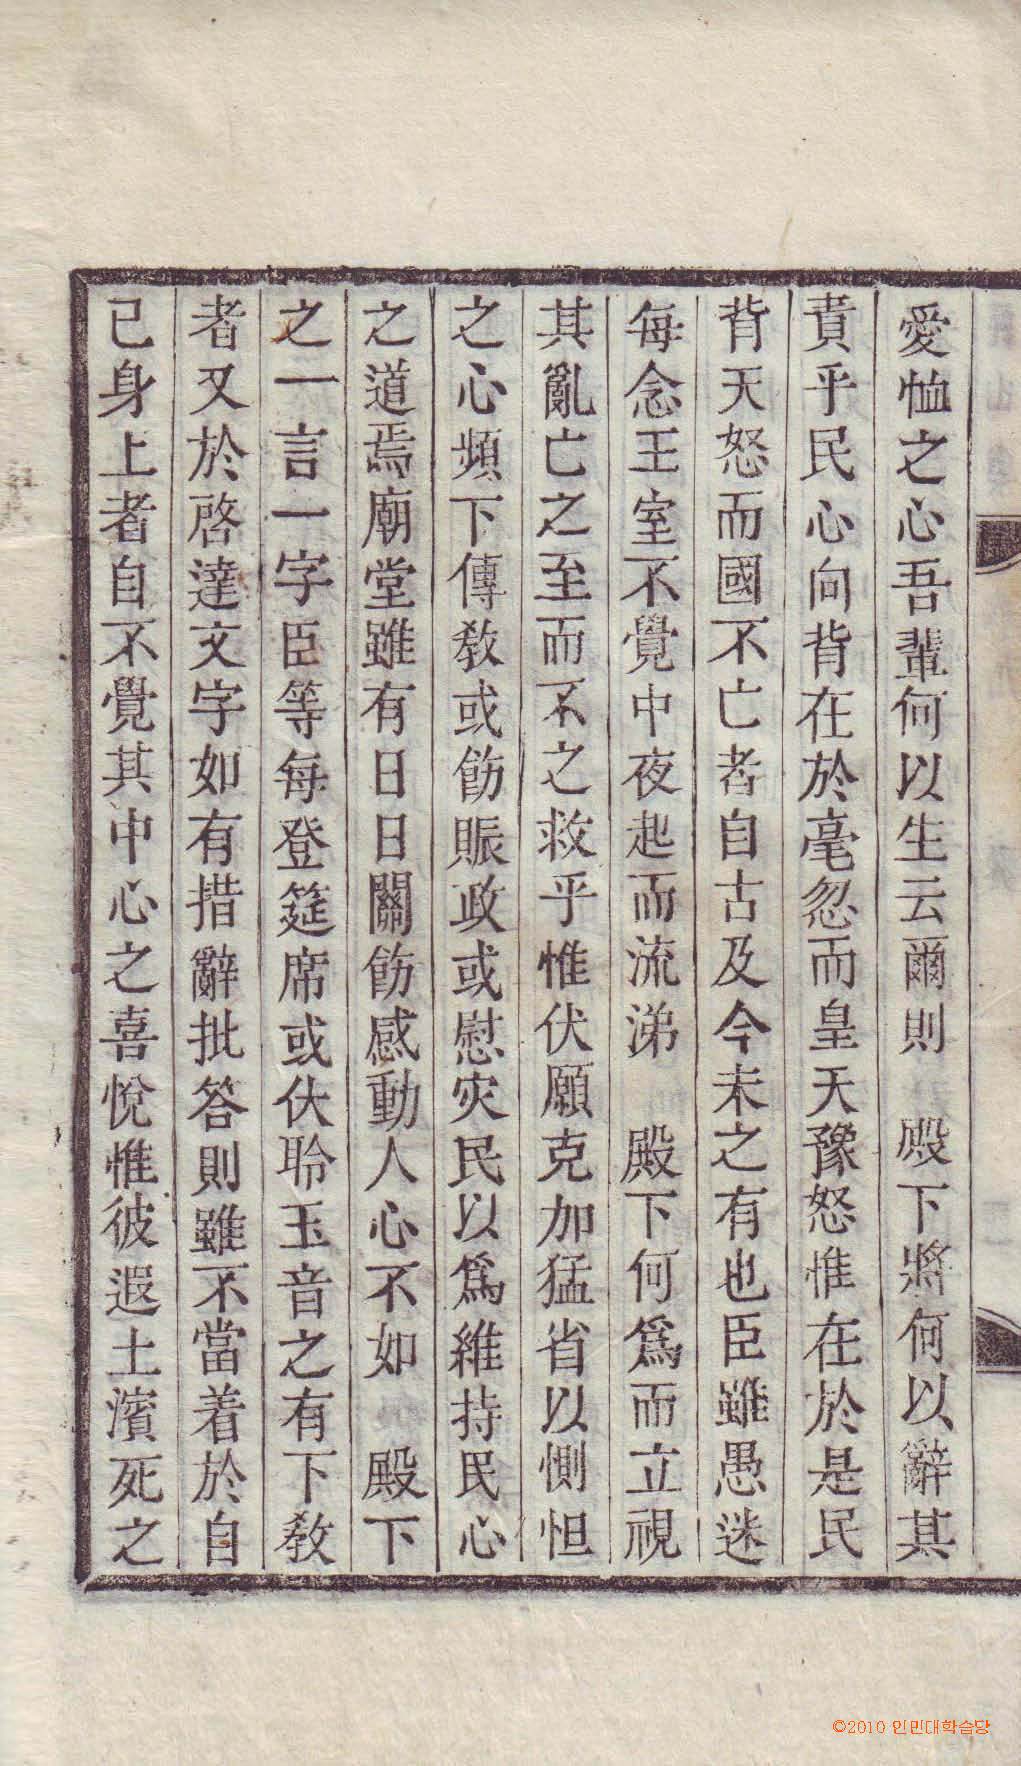 愛恤之心吾輩何以生云爾則　殿下將何以辭其
責乎民心向背在於毫忽而皇天豫怒惟在於是民
背天怒而國不亡者自古及今未之有也臣雖愚迷
每念王室不覺中夜起而流涕　殿下何爲而立視
其亂亡之至而不之救乎惟伏願克加猛省以惻怛
之心頻下傳教或飭賑政或慰灾民以爲維持民心
之道焉廟堂雖有日日關飭感動人心不如　殿下
之一言一字臣等每登筵席或伏聆玉音之有下教
者又於啓達文字如有措辭批答則雖不當着於自
己身上者自不覺其中心之喜悅惟彼遐土濱死之
©2010 인민대학습당